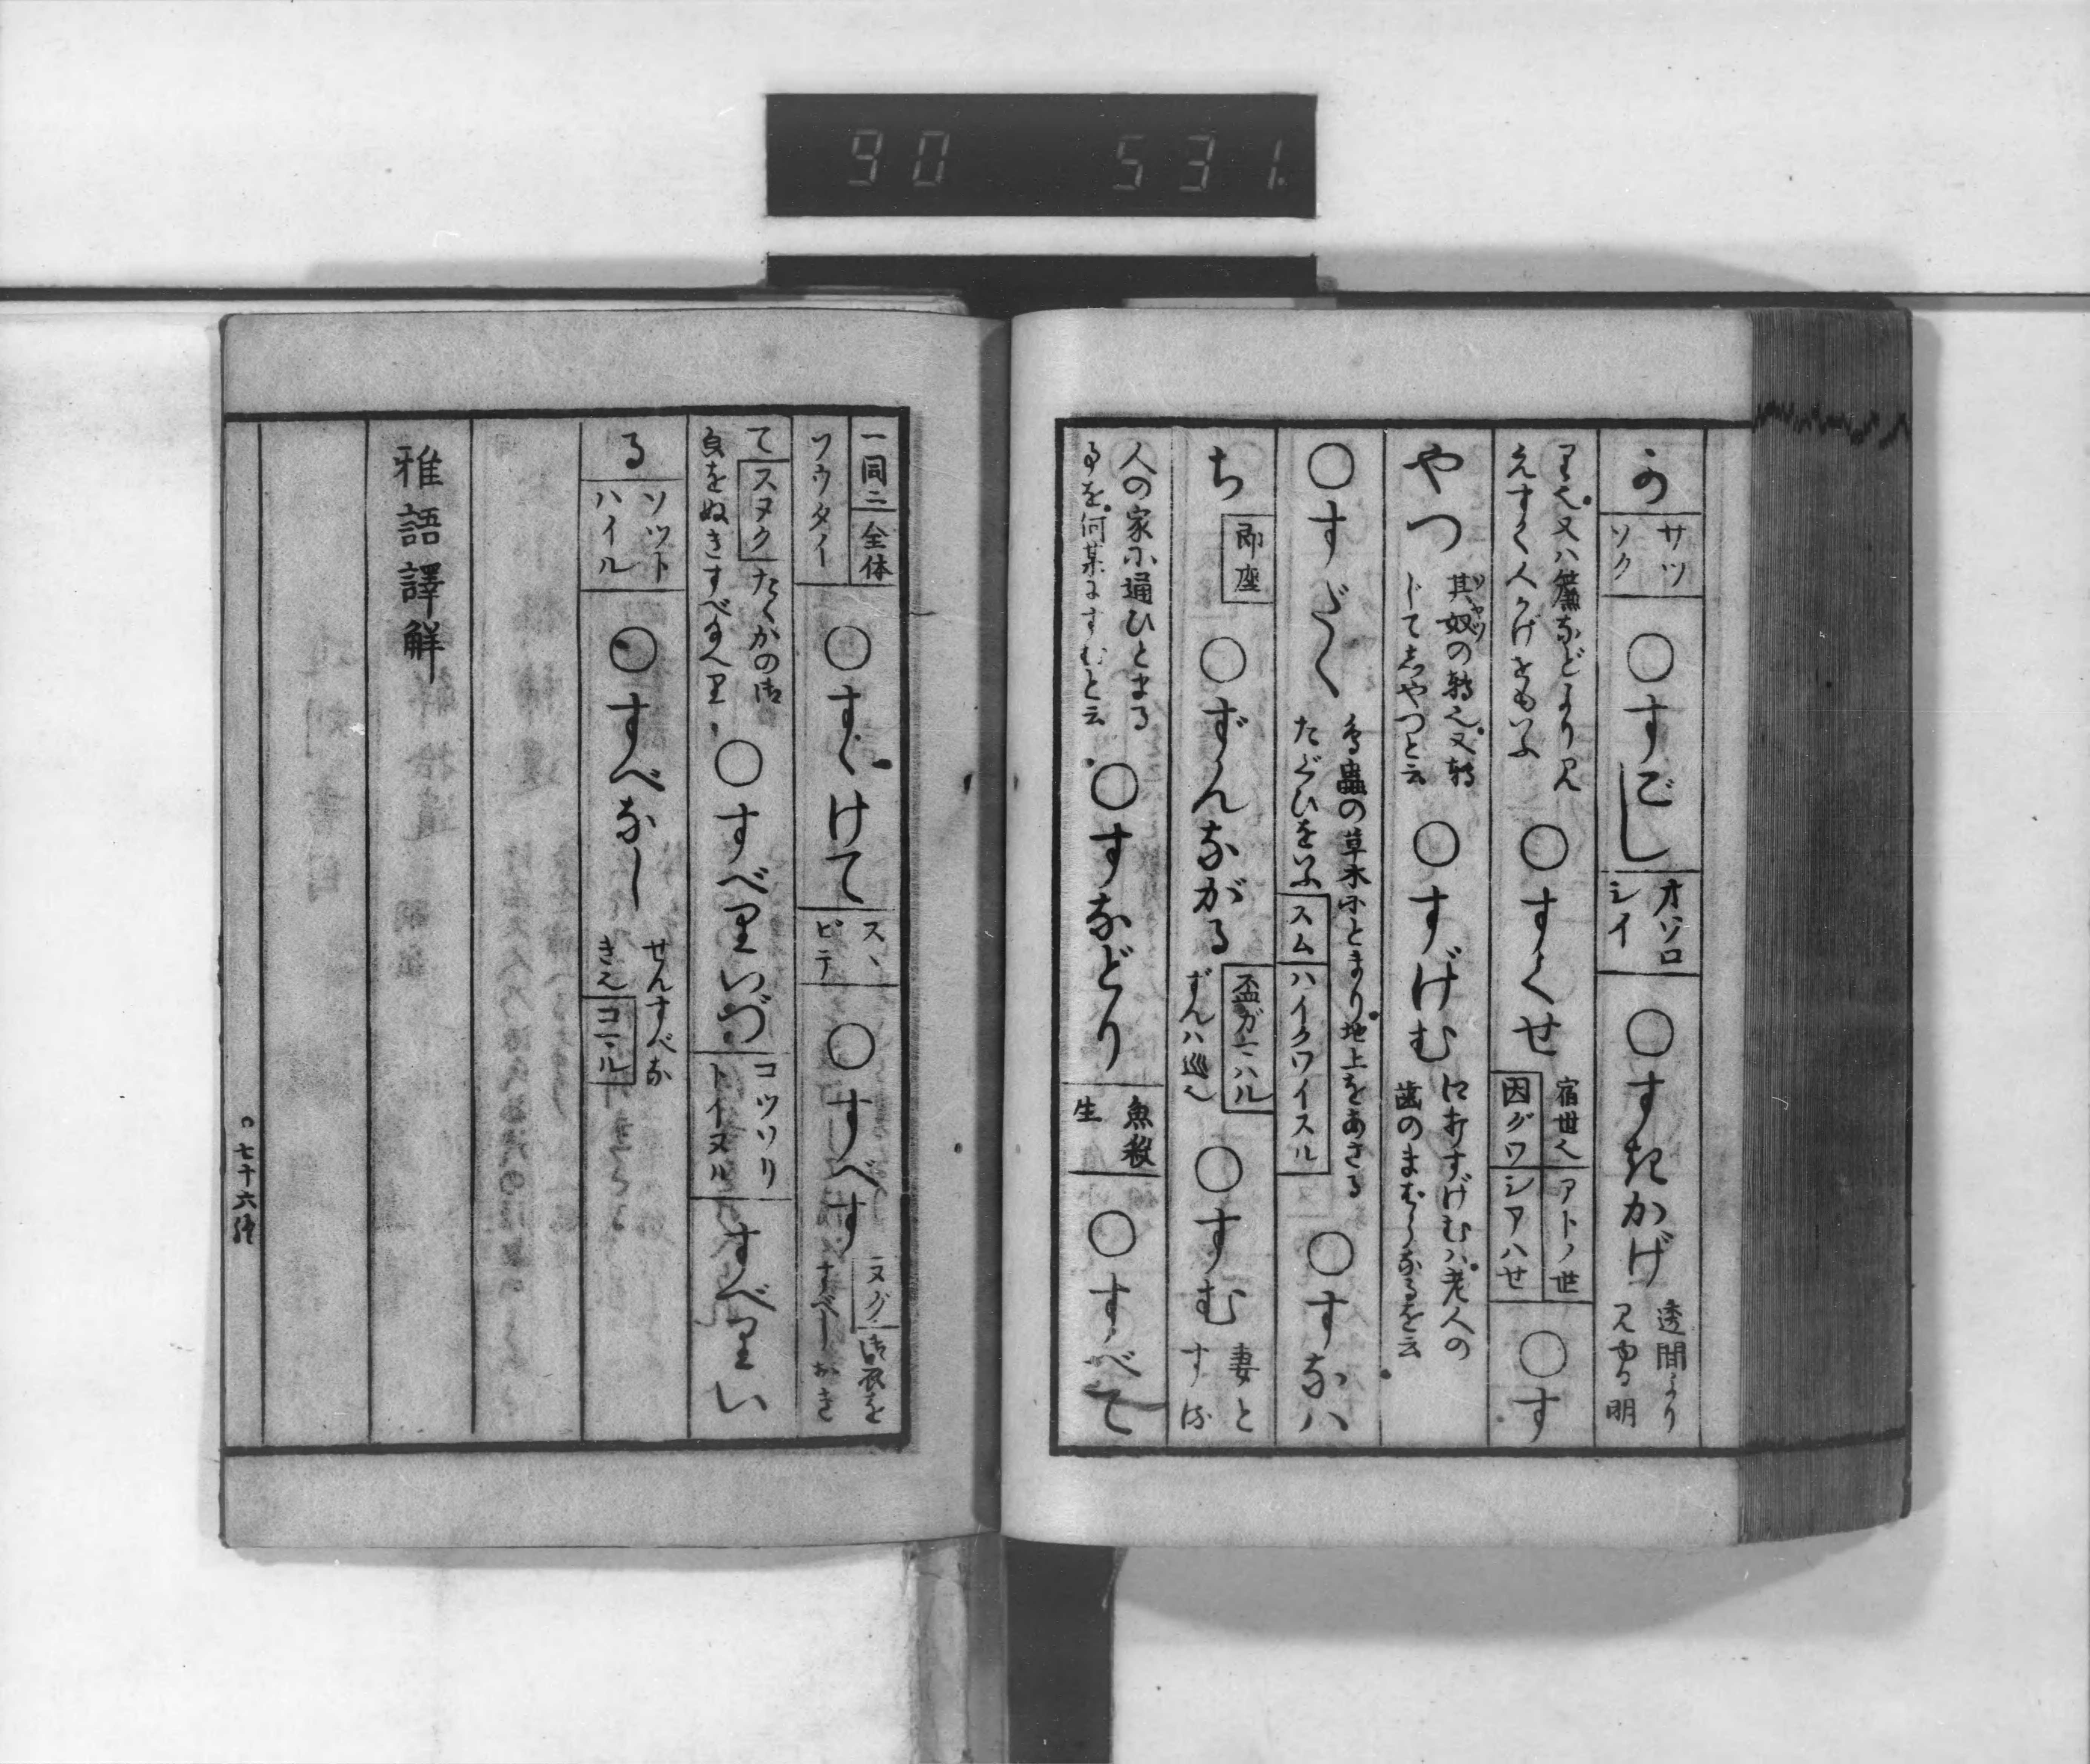 90 531.
か サツソク ○すごし オソロシイ ○すきかげ 透間より見ゆる明
りえ又ハ簾などより見えすく人かげをもいふ ○すくせ 宿世え アトノ世 因グワ シアハせ ○す
やつ 其奴の轉え又轉じてしやつと云 ○すげむ 口打すげむハ老人の歯のまばらなるを云
○すだく 鳥蟲の草木にとまり地上をあさるたぐひをいふ スム ハイクワイスル ○すなハ
ち 即座 ○ずんながる 盃ガマハル ずんハ巡え ○すむ 妻とすば
人の家に通ひとまるを何某にすむと云 ○すなどり 魚殺生 ○すべて
一同ニ 全体 ソウタイ ○すゝけて スヽビテ ○すべす ヌグ 御衣をすべしおき
て スヌク たくかの御身をぬきすべなへり ○すべりいづ コツソリトイヌル すべりい
る ソツトハイル ○すべなし せんすべなきえ コマル
雅語譯解
七十六終